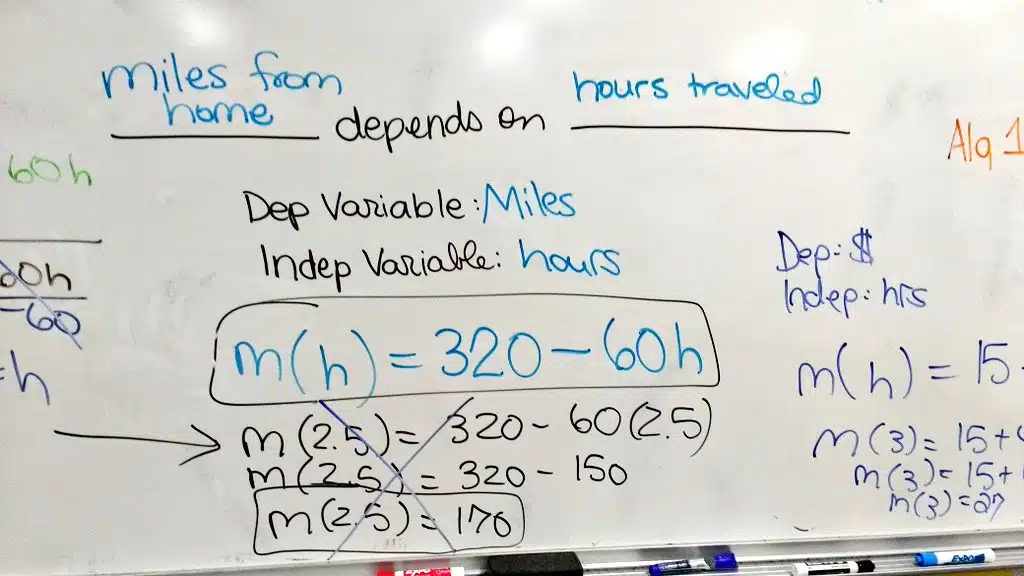 miles from
home depends on hours traveled
Dep Variable: Miles
Indep Variable: hours
m(h) = 320 - 60h
m(2.5) = 320 - 60(2.5)
m(2.5) = 320 - 150
m(2.5) = 170
60h
60h
-60
=h
Alg 1
Dep: $
Indep: hrs
m(h) = 15
m(3) = 15+
m(3) = 15+
m(3) = 27
EXPO
EXPO